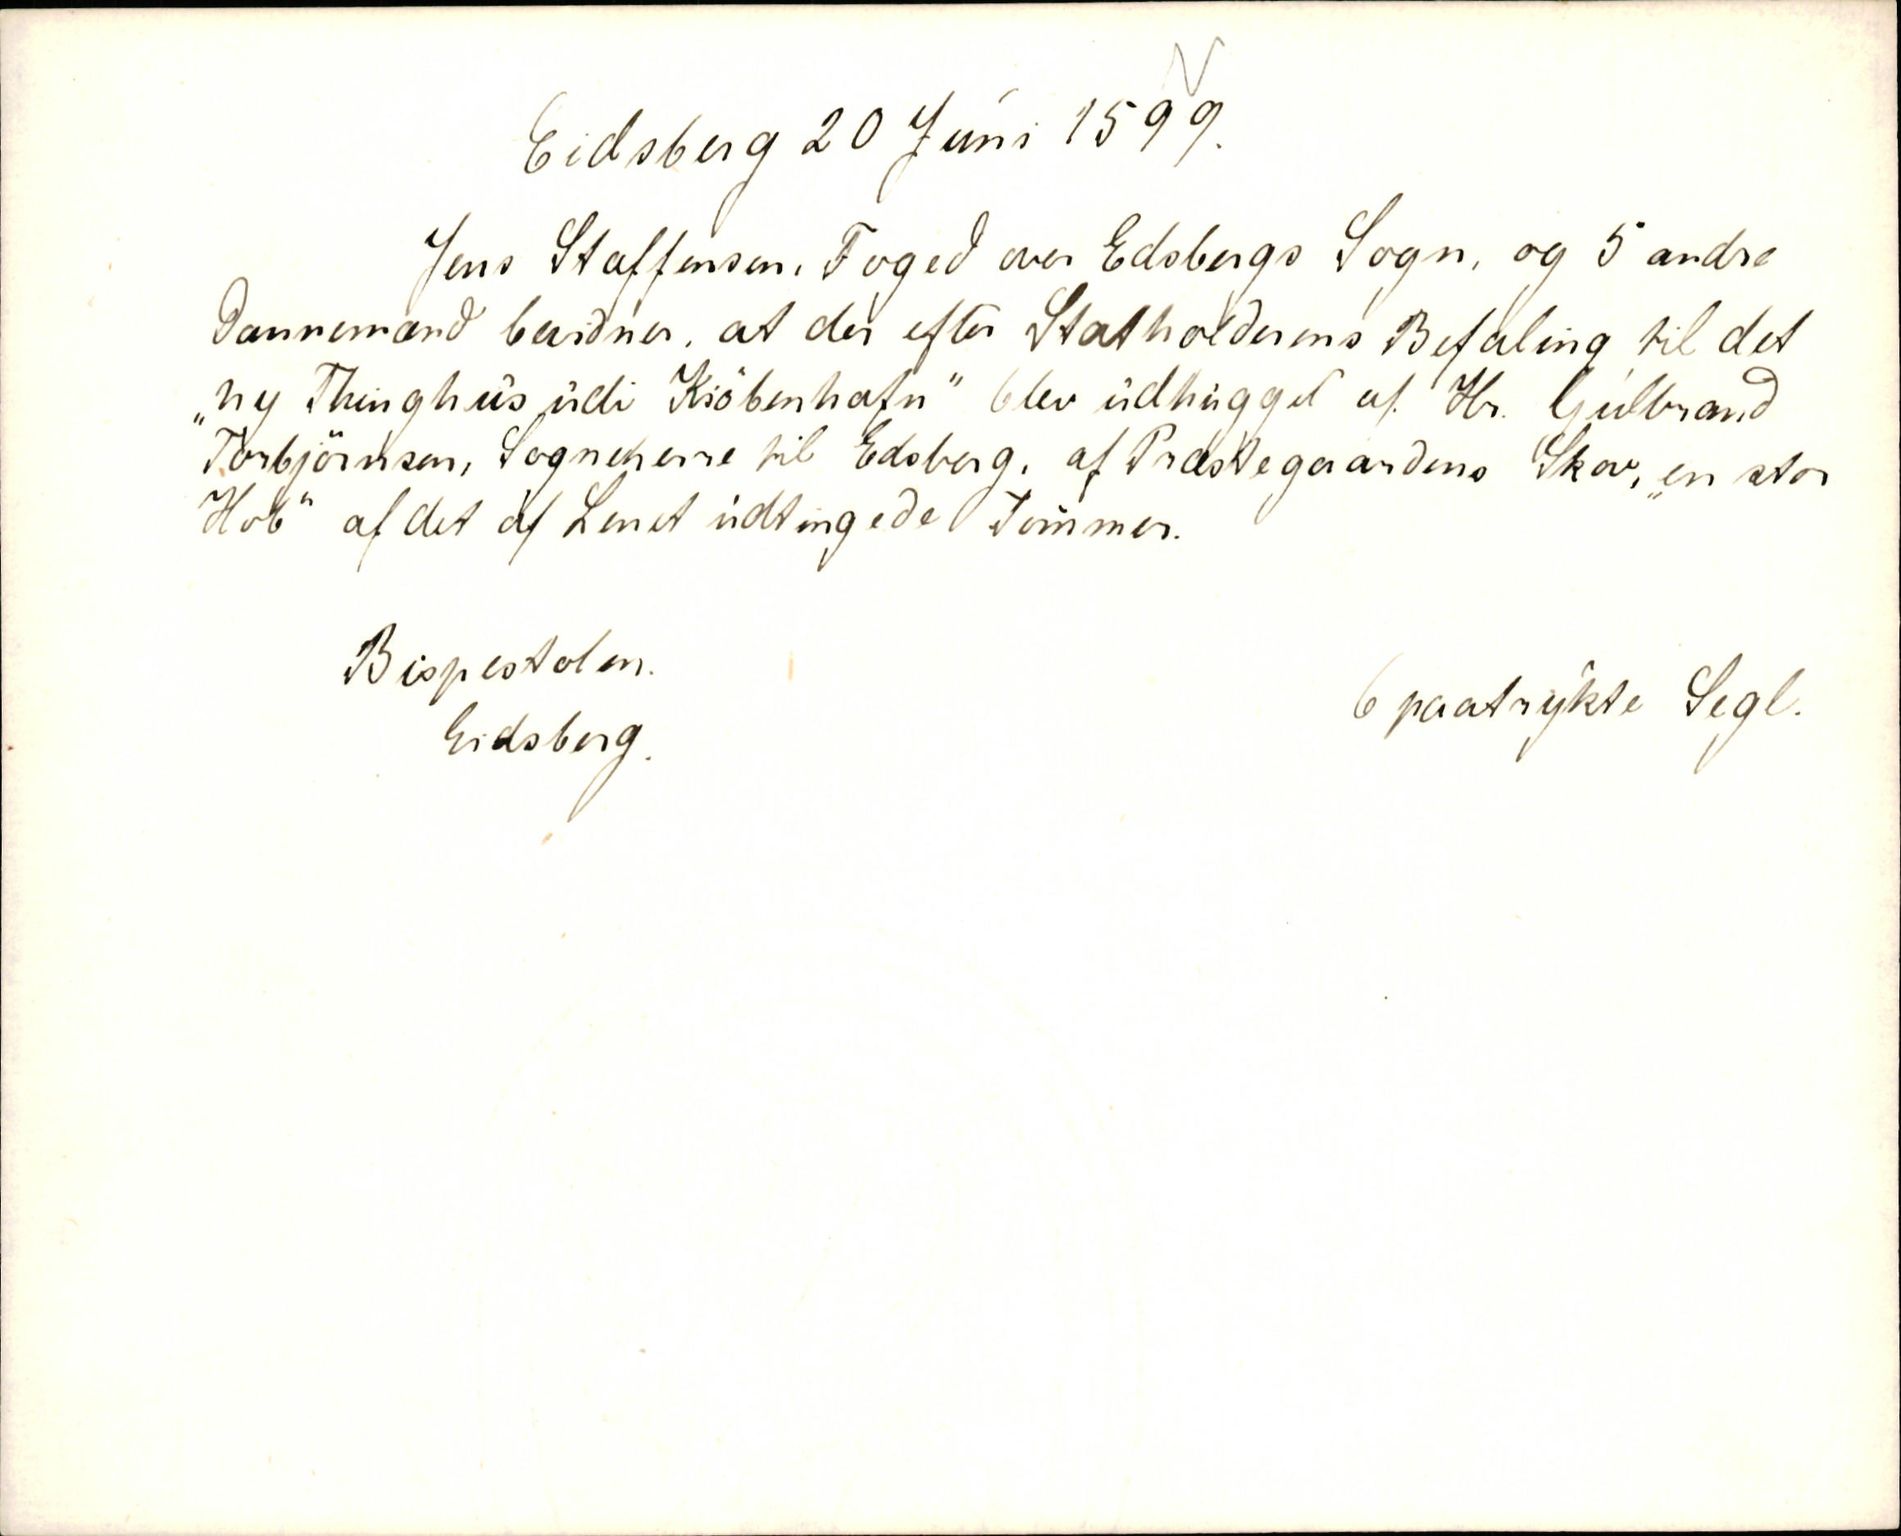 N
Eidsberg 20 Juni 1599.
Jens Staffensen, Foged over Edsbergs Sogn, og 5 andre
Dannemænd bevidner, at der efter Statholderens Befaling til det
„ny Thinghus udi Kiöbenhafn" blev udhugget af Hr. Gulbrand
Torbjörnsen, Sogneherre til Edsberg, af Præstegaardens Skov, „en stor
Hob" af det af Lenet udtingede Tömmer.
Bispestolen.
Eidsberg.
6 paatrykte Segl.